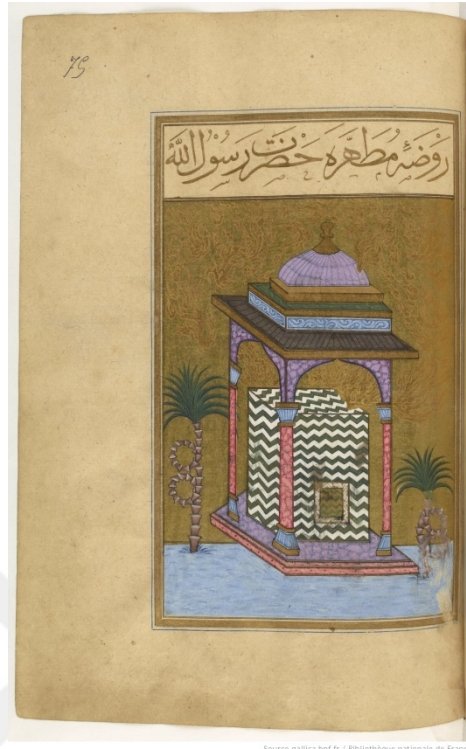 75
رَوْضَهٔ مُطَهَّرَه حَضْرَتِ رَسُولُ اللَّهْ
Source gallica.bnf.fr / Bibliothèque nationale de France